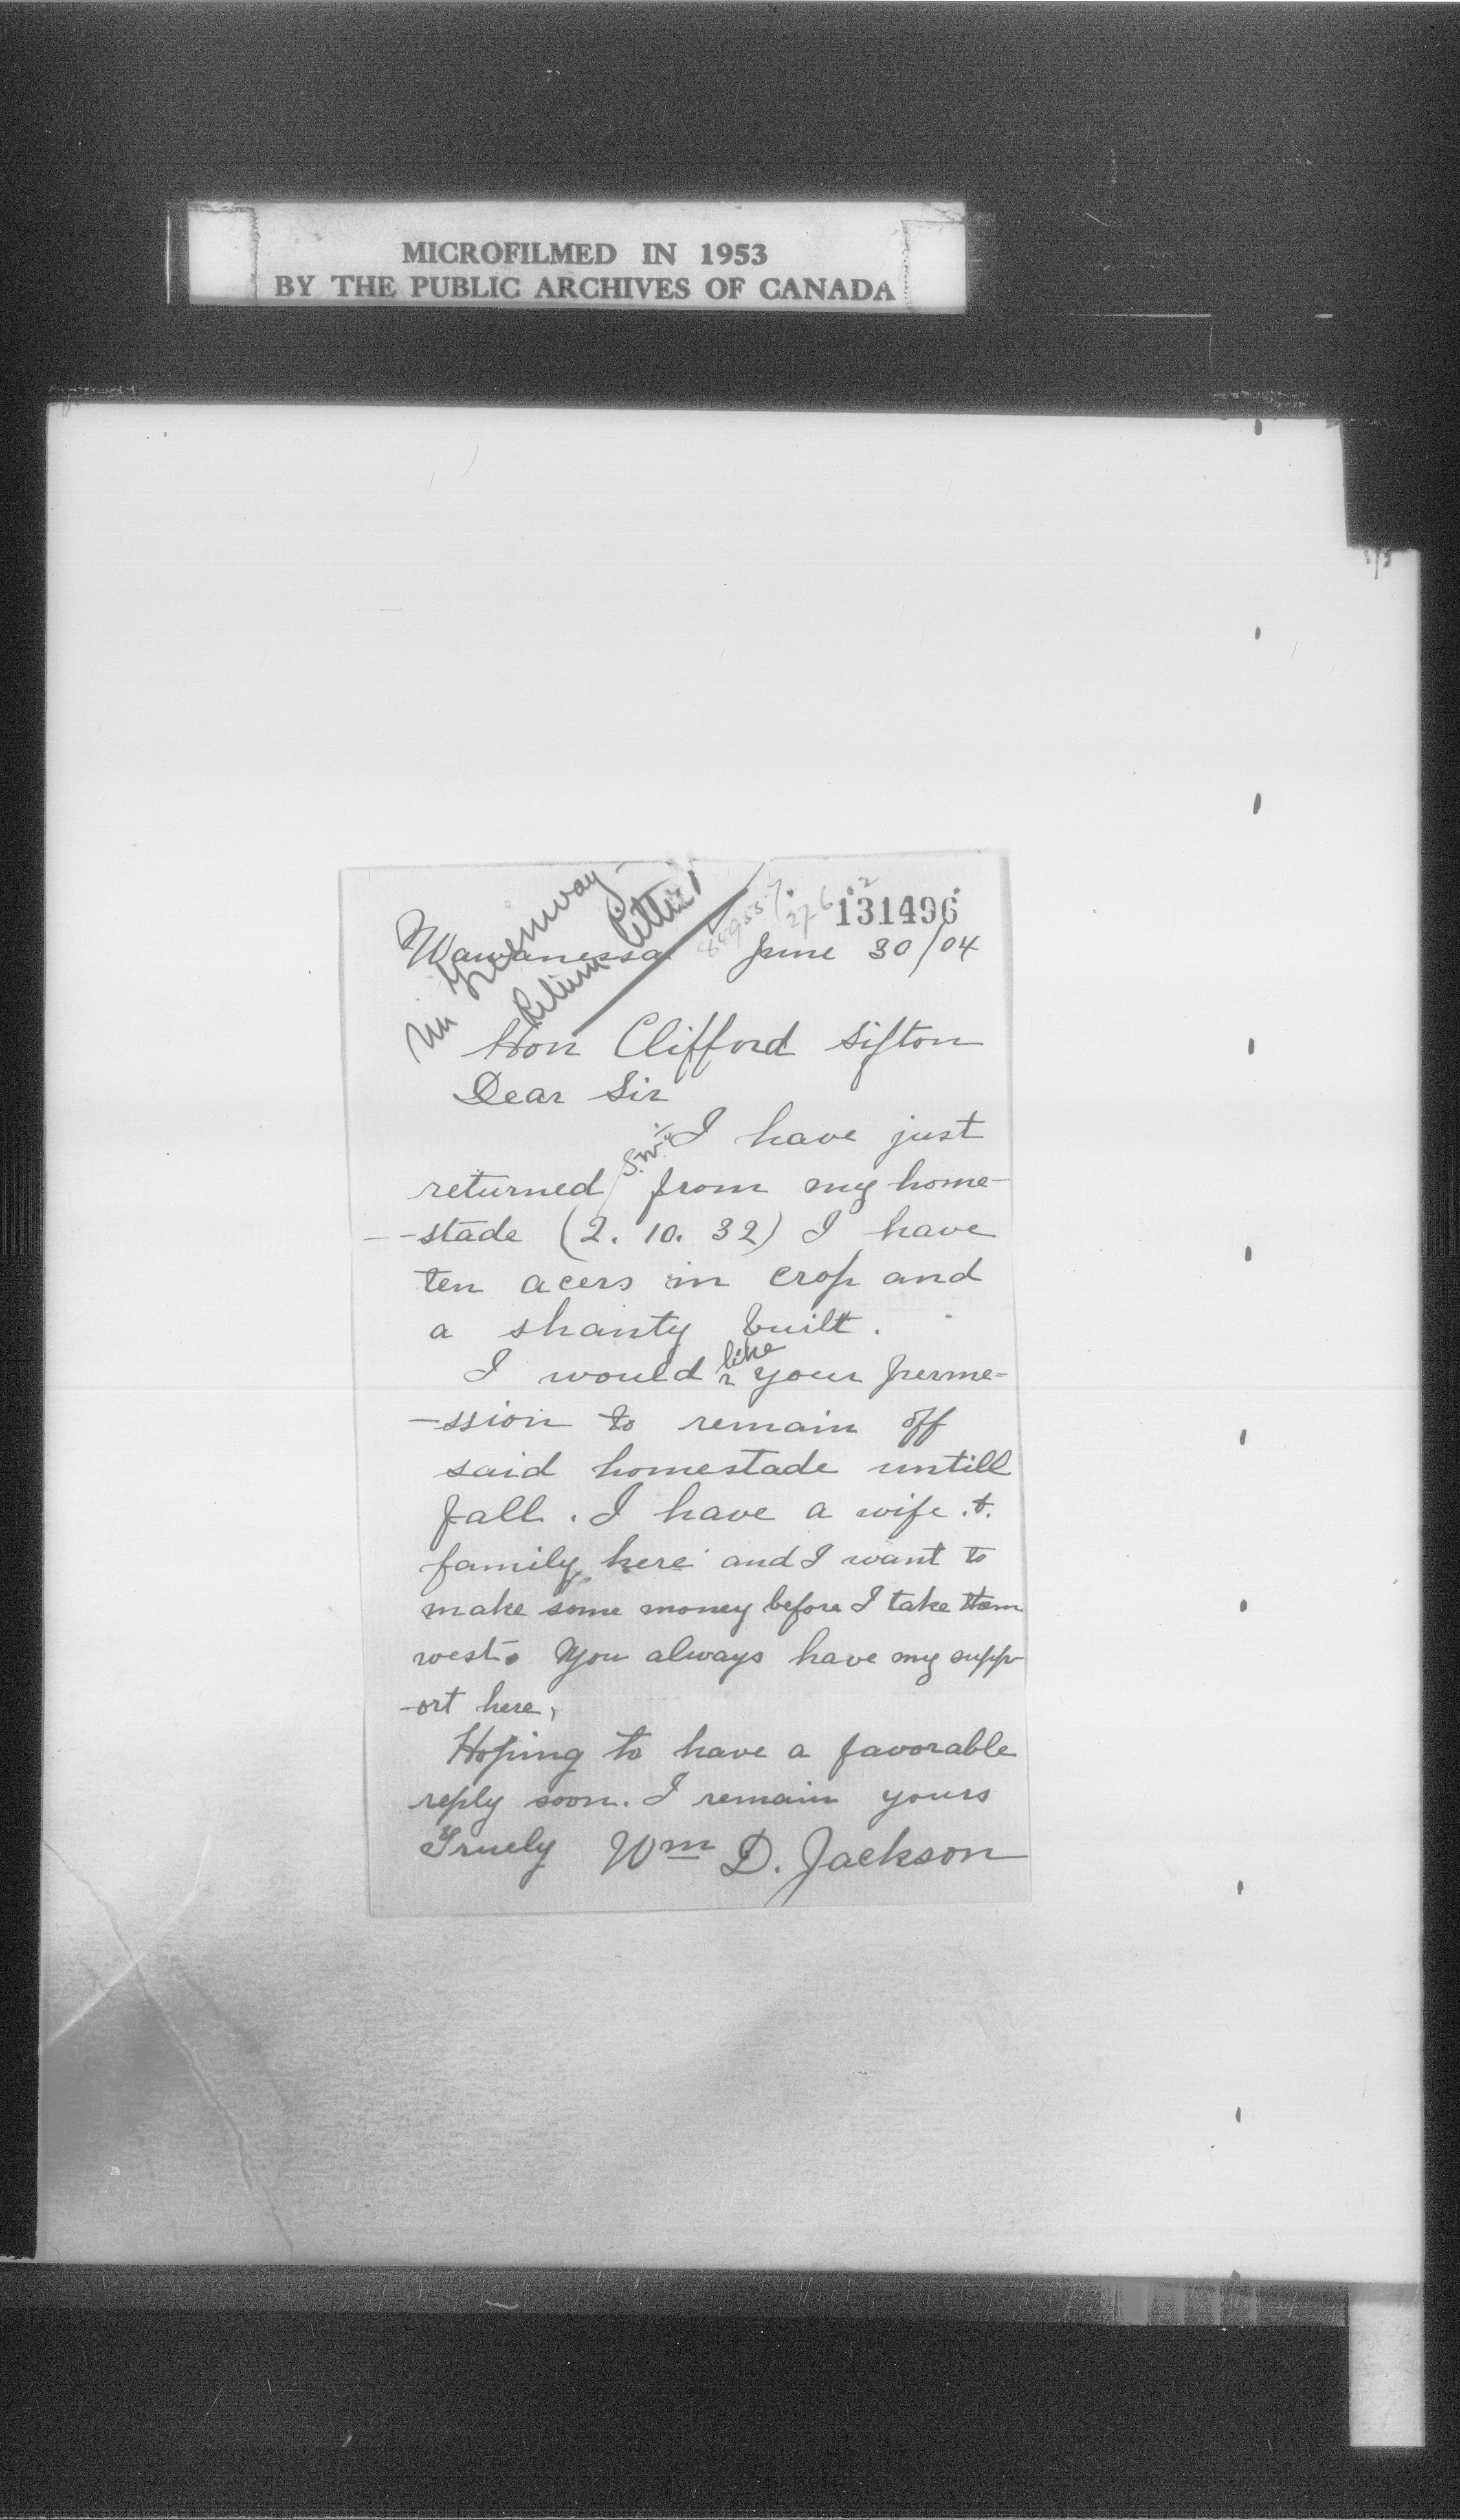 MICROFILMED IN 1953
BY THE PUBLIC ARCHIVES OF CANADA
131496
Mr Greenway
Return letter
Wawanessa June 30/04
Hon Clifford Sifton
Dear Sir
I have just
S.W. ¼
returned from my home-
-stade (2. 10. 32) I have
ten acers in crop and
a shanty built.
I would like your perme-
-ssion to remain off
said homestade untill
fall. I have a wife &
family here and I want to
make some money before I take them
west. You always have my supp-
-ort here,
Hoping to have a favorable
reply soon. I remain yours
Truely Wm D. Jackson